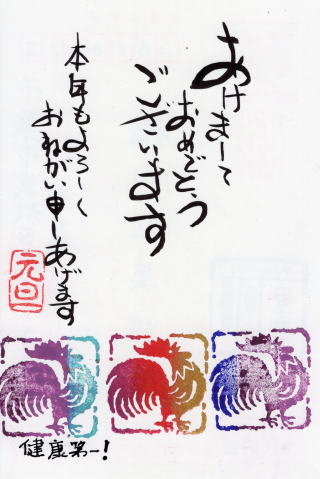 あけまして
おめでとう
ございます
本年もよろしく
おねがい申しあげます
元旦
健康第一！